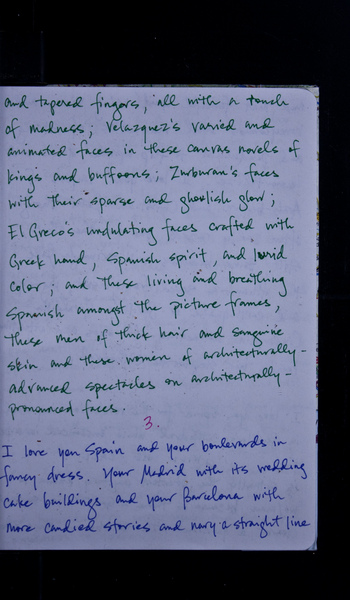 and tapered fingers, all with a touch
of madness; Velazquez's varied and
animated faces in these canvas novels of
kings and buffoons; Zurburan's faces
with their sparse and ghoulish glow;
El Greco's undulating faces crafted with
Greek hand, Spanish spirit, and lurid
color; and these living and breathing
Spanish amongst the picture frames,
these men of thick hair and sanguine
skin and these women of architecturally-
advanced spectacles on architecturally-
pronounced faces.
3.
I love you Spain and your boulevards in
fancy dress. Your Madrid with its wedding
cake buildings and your Barcelona with
more candied stories and nary a straight line